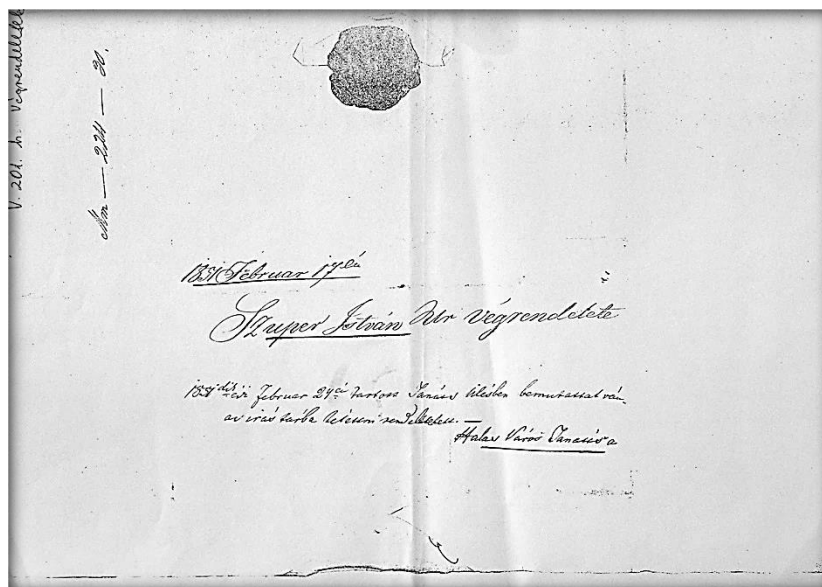 V. 201. h. Végrendeletek
Szám — 224 — 20.
1851 Februar 17én
Szuper István Ur végrendelete
1851dik évi Februar 24én tartott Tanács ülésben bemutattatván,
az irás tárba tétetni rendeltetett. —
Halas Város Tanácsa